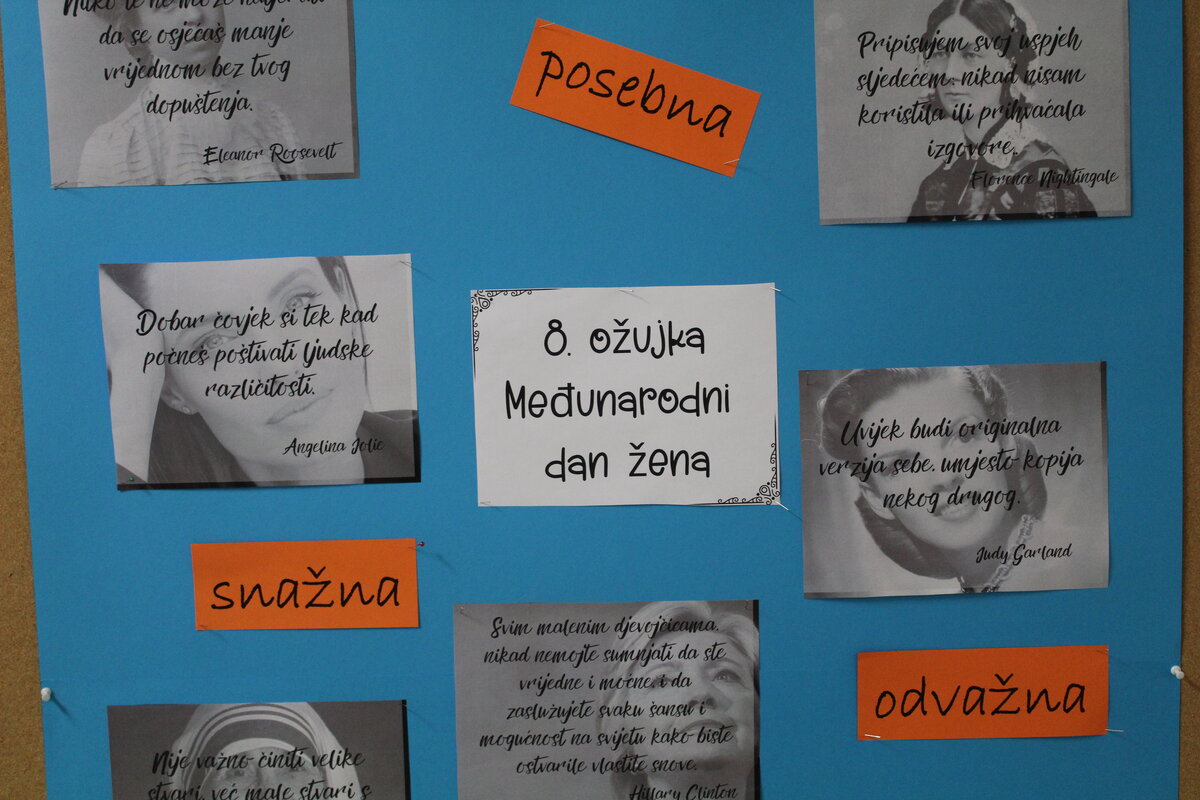 Nitko te ne može
da se osjećaš manje
vrijednom bez tvog
dopuštenja.
Eleanor Roosevelt
posebna
Pripisujem svoj uspjeh
sljedećem: nikad nisam
koristila ili prihvaćala
izgovore.
Florence Nightingale
Dobar čovjek si tek kad
počneš poštivati ljudske
različitosti.
Angelina Jolie
8. ožujka
Međunarodni
dan žena
Uvijek budi originalna
verzija sebe, umjesto kopija
nekog drugog.
Judy Garland
snažna
Svim malenim djevojčicama,
nikad nemojte sumnjati da ste
vrijedne i moćne, i da
zaslužujete svaku šansu i
mogućnost na svijetu kako biste
ostvarile vlastite snove.
Hillary Clinton
odvažna
Nije važno činiti velike
stvari, već male stvari s